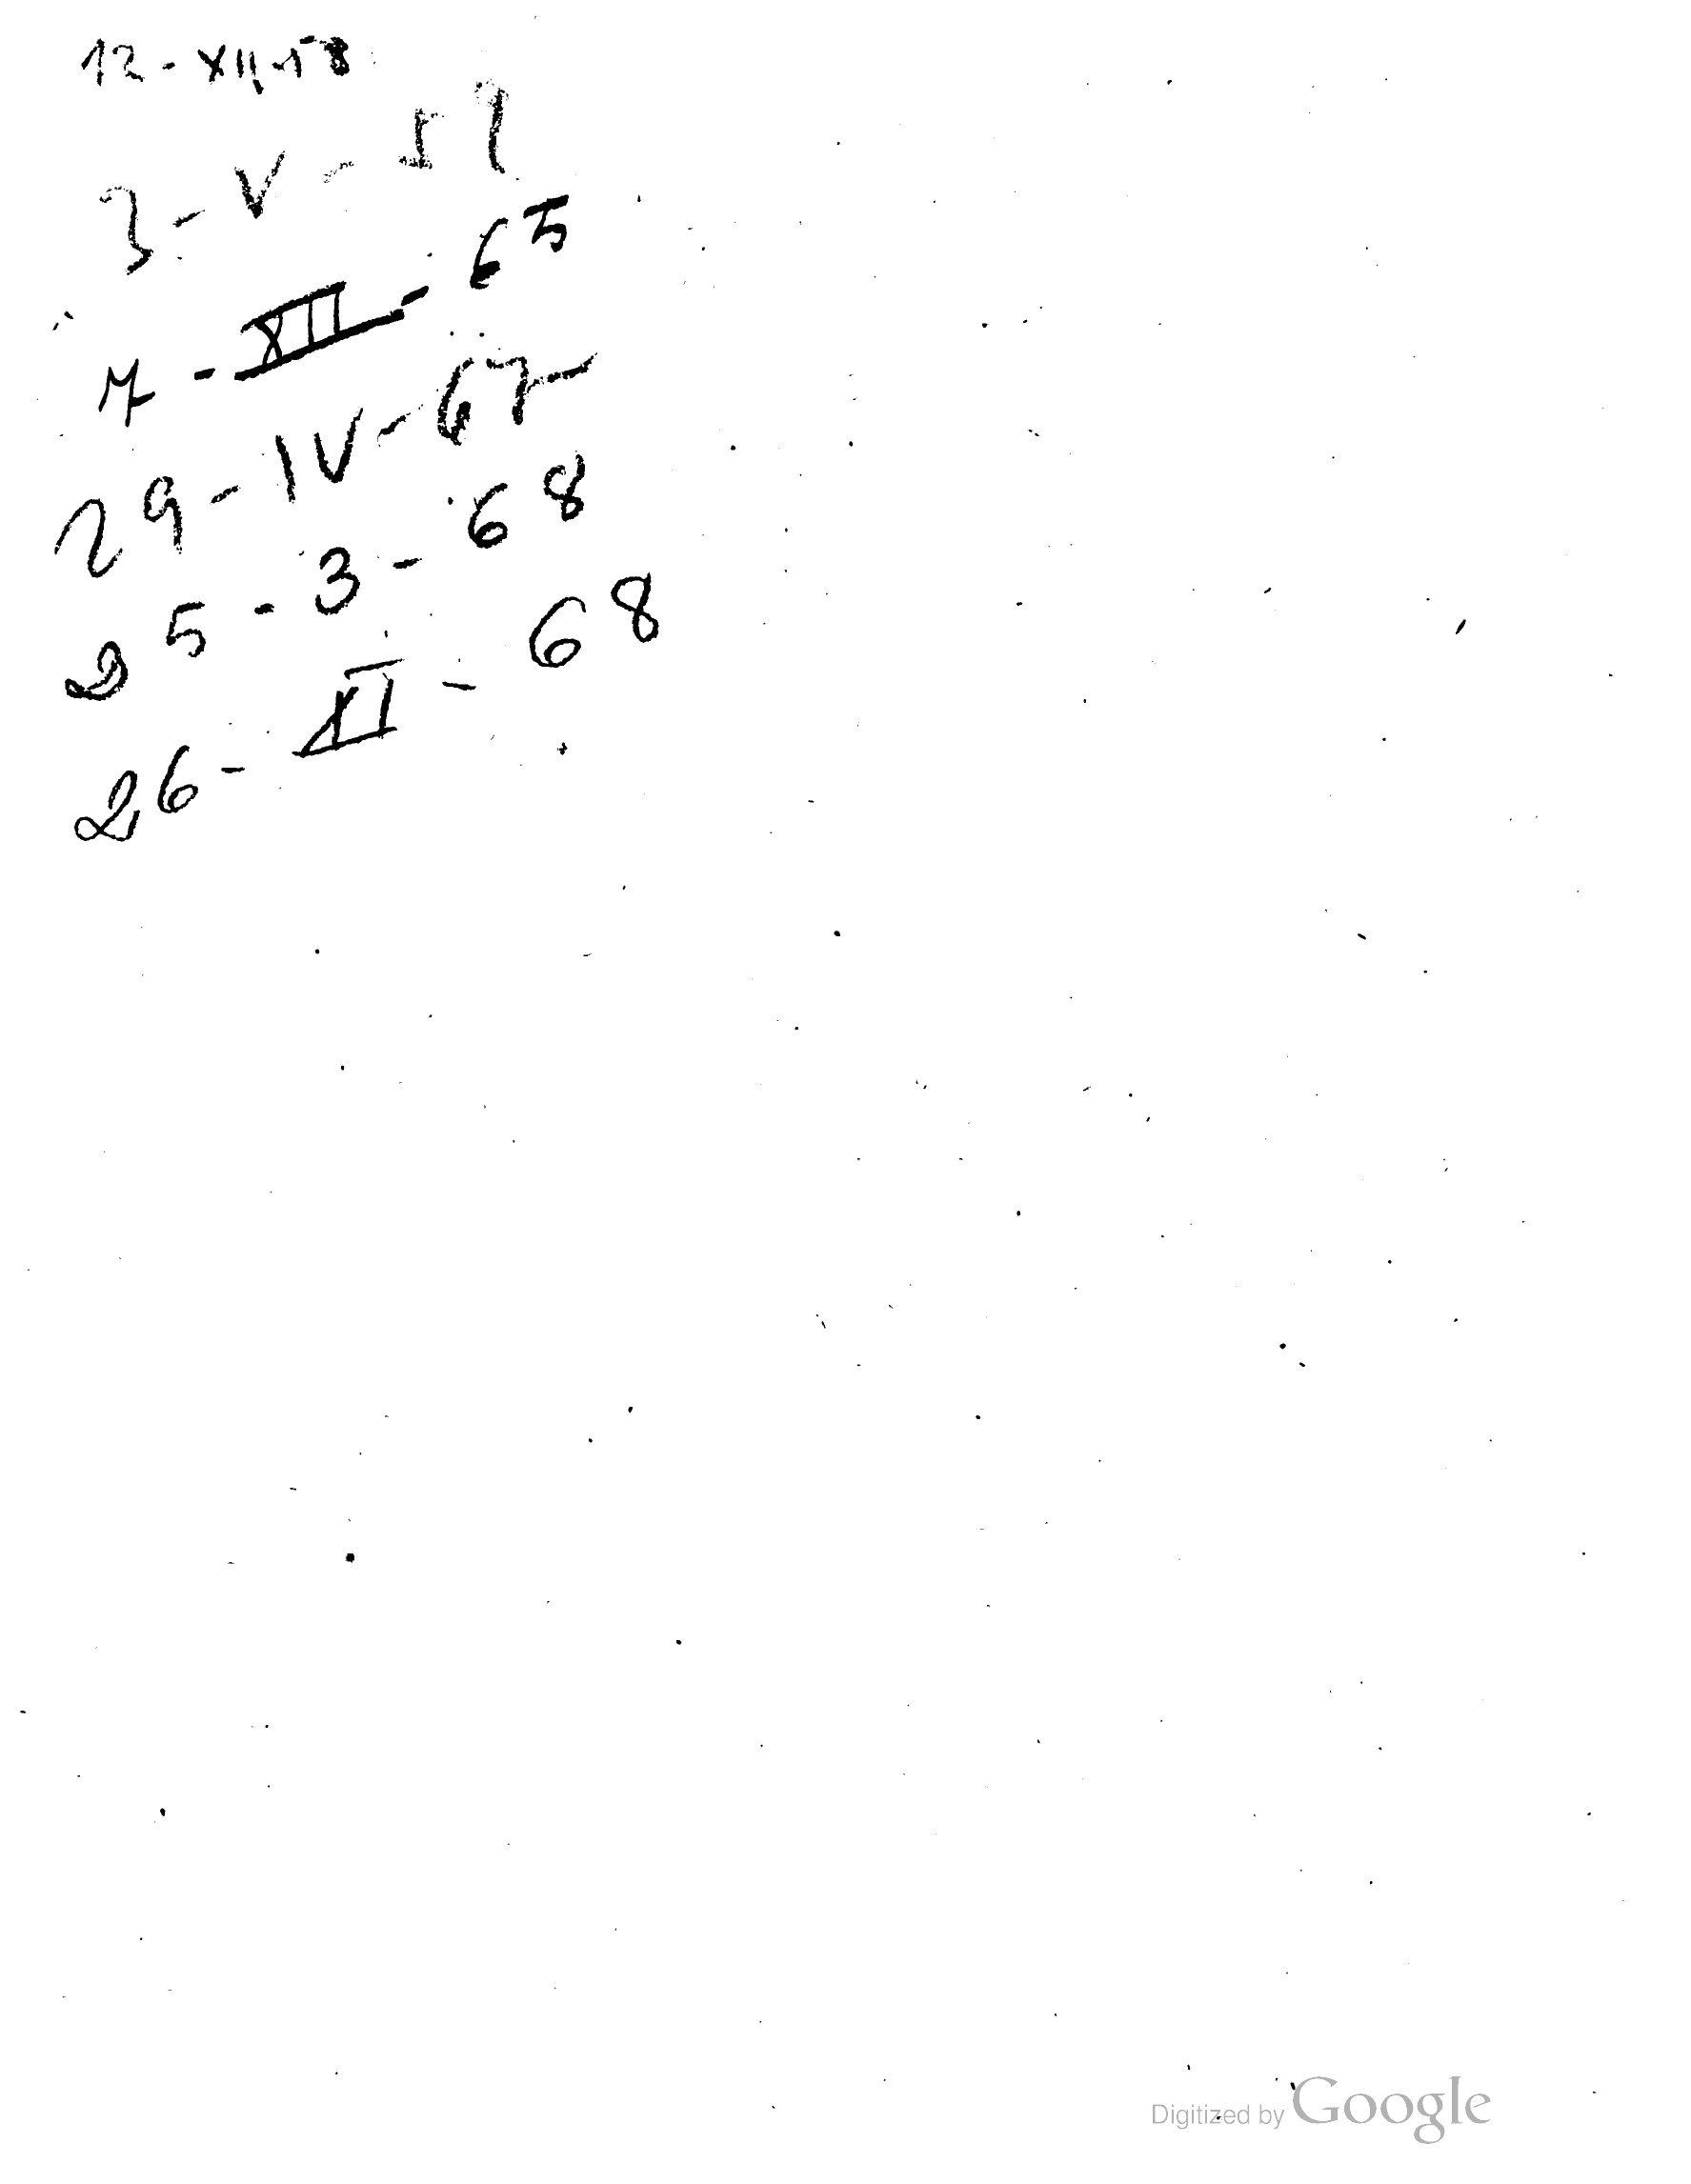 12-XII-58
3-V-59
7-XII-65
29-IV-67
25-3-68
26-XI-68
Digitized by Google